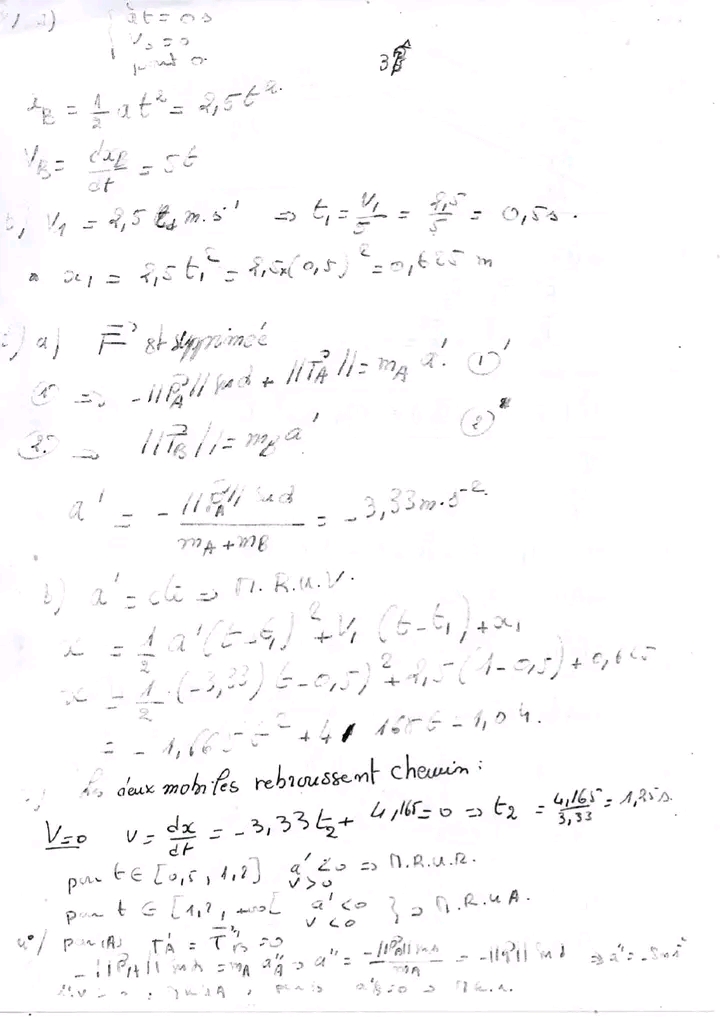 à t = 0 s
V₀ = 0
point O
3
x_B = 1/2 a t² = 2,5 t²
V_B = dx_B/dt = 5t
V₁ = 2,5 m.s⁻¹ ⇒ t₁ = V₁/5 = 2,5/5 = 0,5 s.
x₁ = 2,5 t₁² = 2,5 x (0,5)² = 0,625 m
a) F⃗ est supprimée
① ⇒ - ||P⃗_A|| sin α + ||T⃗_A|| = m_A a'. ①'
② ⇒ ||T⃗_B|| = m_B a' ②'
a' = - ||P⃗_A|| sin α / (m_A + m_B) = - 3,33 m.s⁻²
b) a' = cte ⇒ M.R.U.V.
x = 1/2 a' (t - t₁)² + V₁ (t - t₁) + x₁
x = 1/2 (-3,33) (t - 0,5)² + 2,5 (t - 0,5) + 0,625
= - 1,665 t² + 4,165 t - 1,04.
Les deux mobiles rebroussent chemin :
V=0 V = dx/dt = - 3,33 t₂ + 4,165 = 0 ⇒ t₂ = 4,165/3,33 = 1,25 s.
pour t ∈ [0,5 , 1,2] a' < 0 V > 0 ⇒ M.R.U.R.
pour t ∈ [1,2 , +∞[ a' < 0 V < 0 } ⇒ M.R.U.A.
4°/ pour (A) T'_A = T'_B = 0